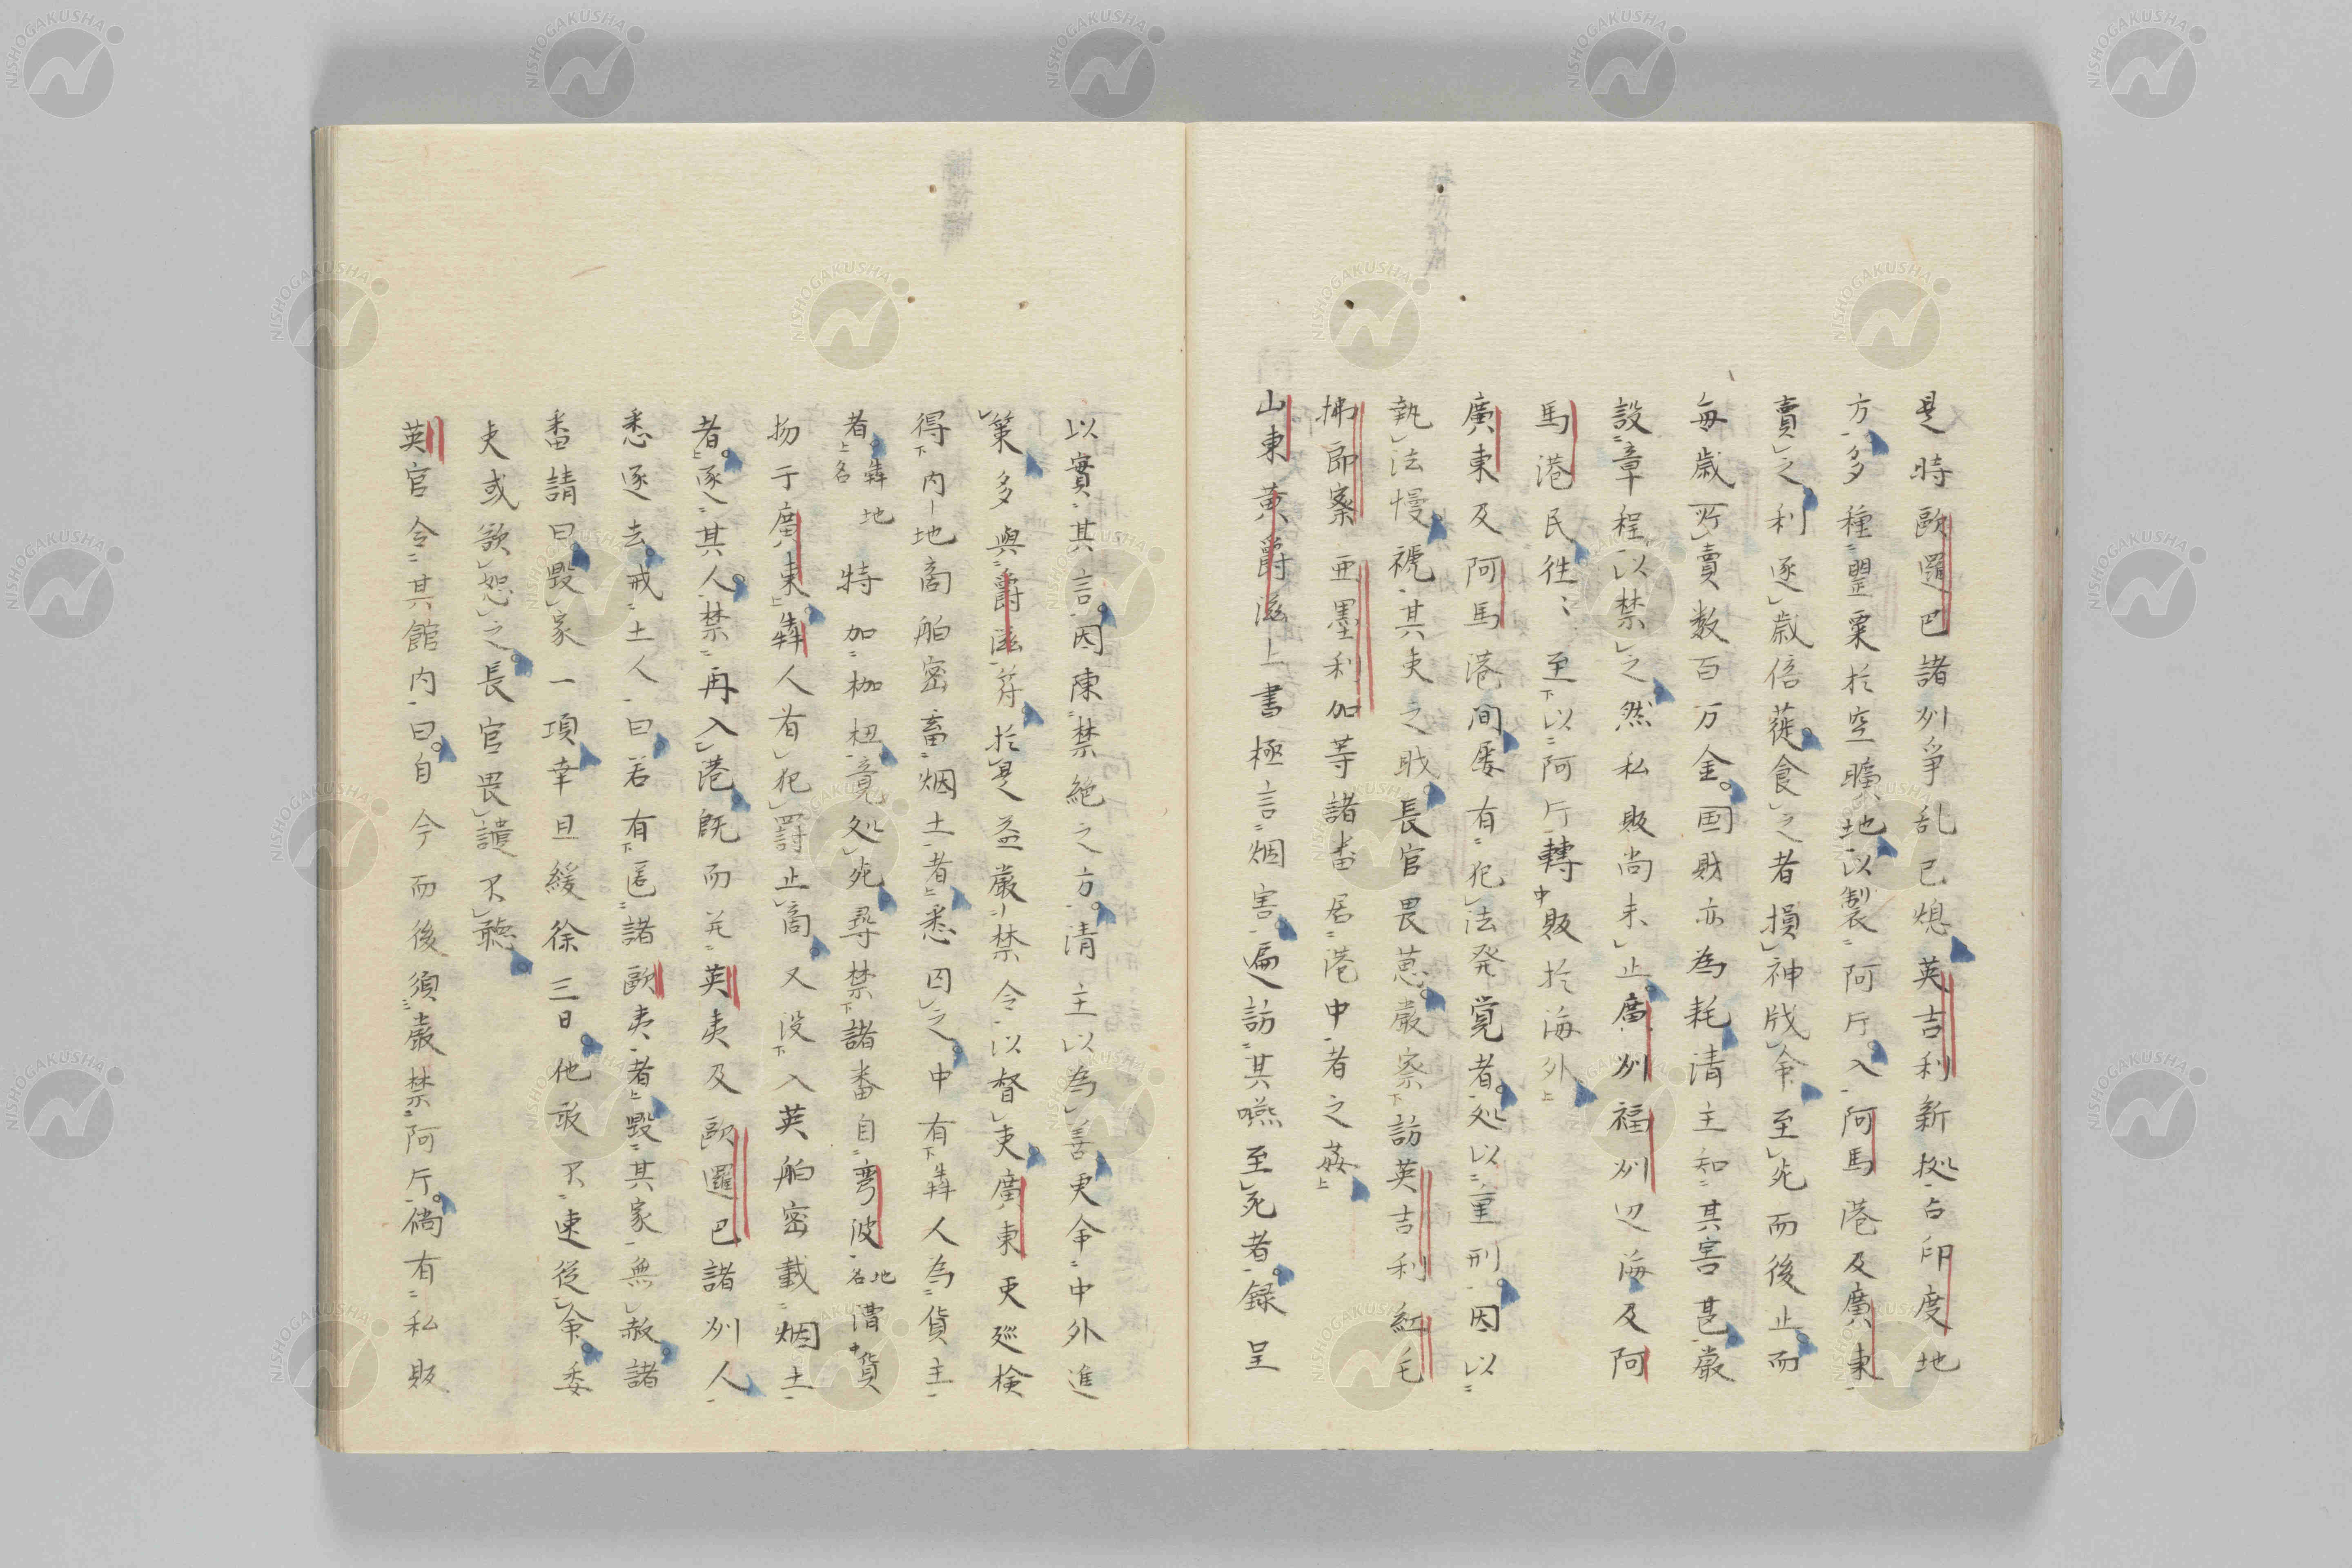 是時歐邏巴諸州爭乱已熄英吉利新拠占印度地
方多種罌粟於空曠地以製阿片入阿馬港及廣東
賣之利逐歳倍蓰食之者損神戕命至死而後止而
毎歳所賣数百万金国財亦為耗清主知其害甚嚴
設章程以禁之然私販尚未止廣州福州辺海及阿
馬港民徃〻至以阿片轉販於海外
廣東及阿馬港間屡有犯法発覚者処以重刑因以
執法慢褫其吏之職長官畏葸嚴察訪英吉利紅毛
拂郎察亜墨利加等諸番居港中者之姦
山東黄爵滋上書極言烟害遍訪其嚥至死者録呈
以實其言因陳禁絶之方清主以為善更命中外進
策多與爵滋符於是益嚴禁令以督吏廣東吏廵検
得内地商舶密畜烟土者悉囚之中有犇人為貨主
者犇地名特加枷杻竟処死尋禁諸番自弯波地名漕貨
物于廣東犇人者犯罰止商又没入英舶密載烟土
者逐其人禁再入港既而並英夷及歐邏巴諸州人
悉逐去戒土人曰若有匿諸歐夷者毀其家無赦諸
番請曰毀家一項幸且緩徐三日他敢不速從命委
吏或欲恕之長官畏譴不聴
英官令其館内曰自今而後須嚴禁阿片倘有私販
NISHOGAKUSHA